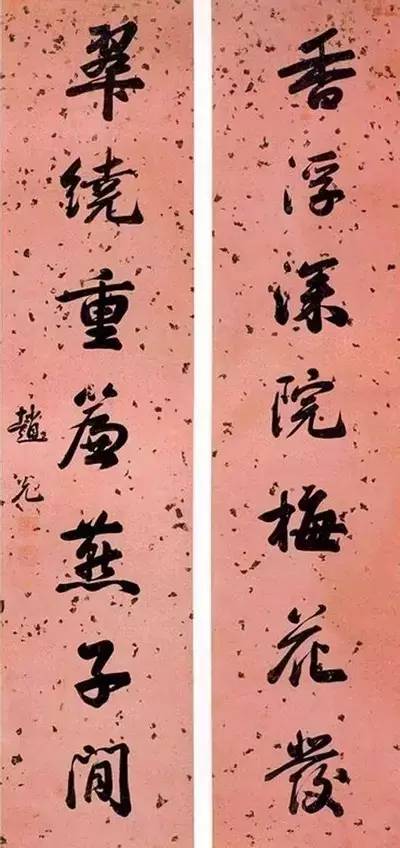 香浮深院梅花發
翠繞重簾燕子閒
趙光